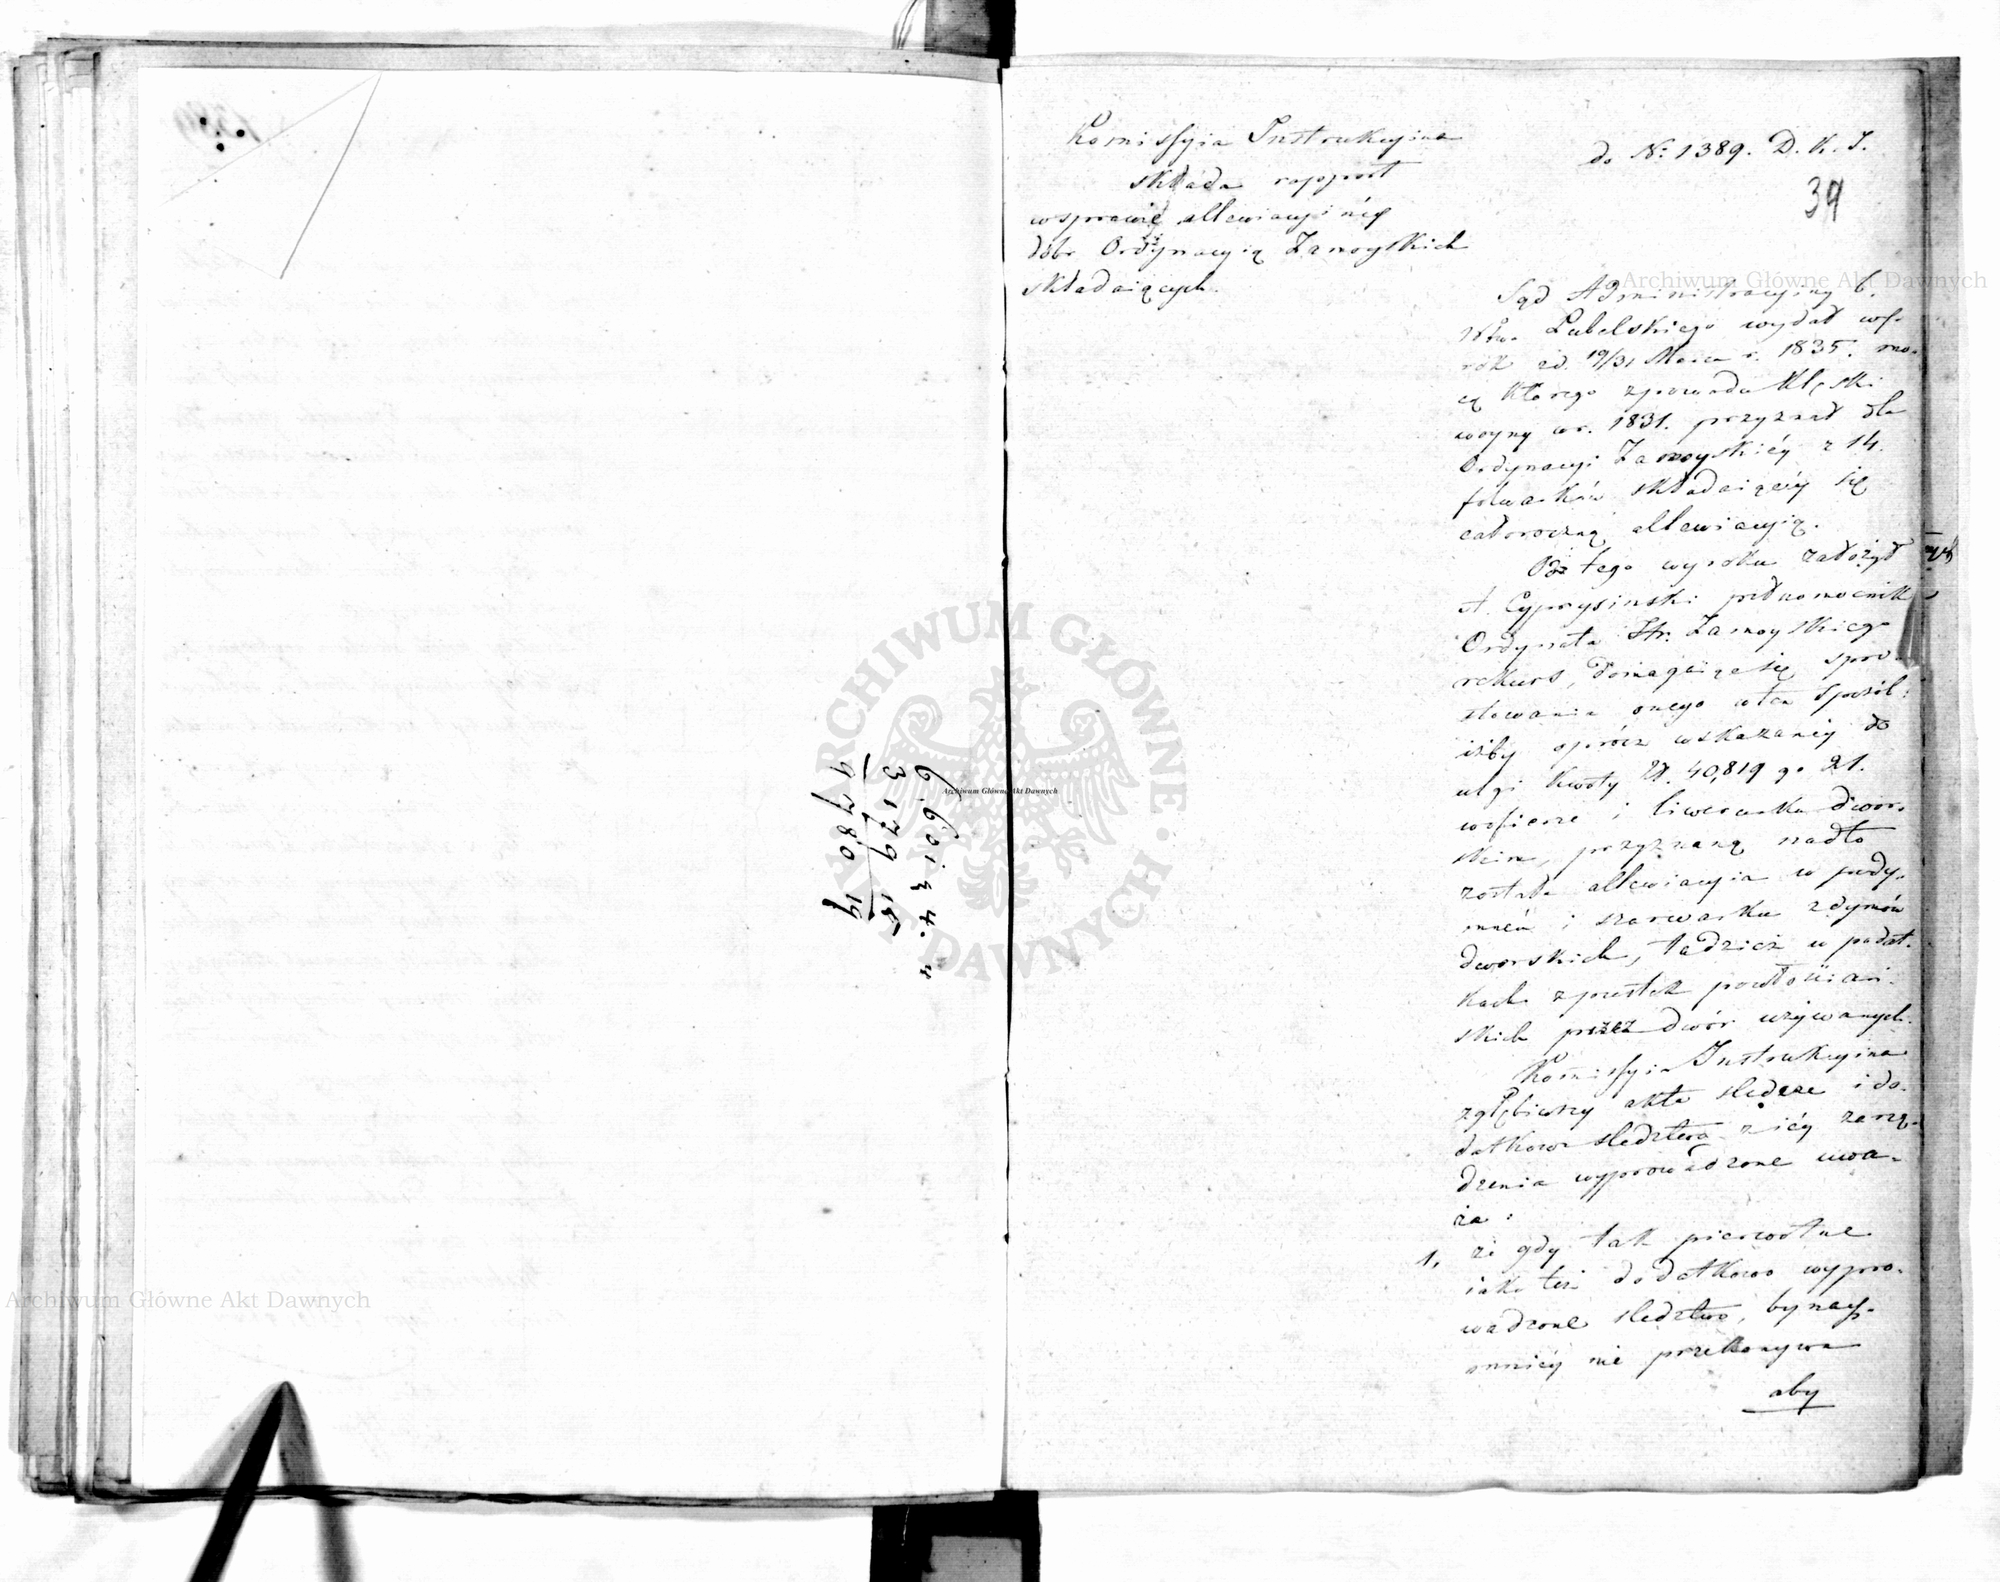 6 601 24. „
3 179 15
9 780 19
Komissyia Instrukcyina
składa rapport
w sprawie allewiacyinéy
dóbr Ordynacyią Zamoyskich
składaiących.
do No. 1389. D. K. I.
39
Sąd Administracyiny b.
Wtwa Lubelskiego wydał wy-
rok ed. 19/31 Marca r. 1835. mo-
cą którego z powodu klęski
woyny w r. 1831. przyznał dla
Ordynacyi Zamoyskiéy z 14.
folwarków składaiącéy się
całoroczną allewiacyią.
Od tego wyroku założył
A. Cyprysinski pełnomocnik
Ordynata Hr. Zamoyskiego
rekurs, domagaiąc się spro-
stowania onego w ten sposób:
iżby oprócz wskazanéy do
ulgi kwoty Zł. 40,819 gr 21.
w ofierze i liwerunku dwor-
skim, przyznaną nadto
została allewiacyia w pody-
mném i szarwarku z dymów
dworskich, tudzież w podat-
kach z pustek powłościań-
skich przez dwór używanych.
Komissyia Instrukcyina
zgłębiwszy akta śledcze i do-
datkowe śledztwo z iéy zarzą-
dzenia wyprowadzone uwa-
ża:
1, że gdy tak pierwotne
iako też dodatkowo wypro-
wadzone śledztwo, bynay-
mniéy nie przekonywa
aby
Archiwum Główne Akt Dawnych
Archiwum Główne Akt Dawnych
Archiwum Główne Akt Dawnych
ARCHIWUM GŁÓWNE AKT DAWNYCH